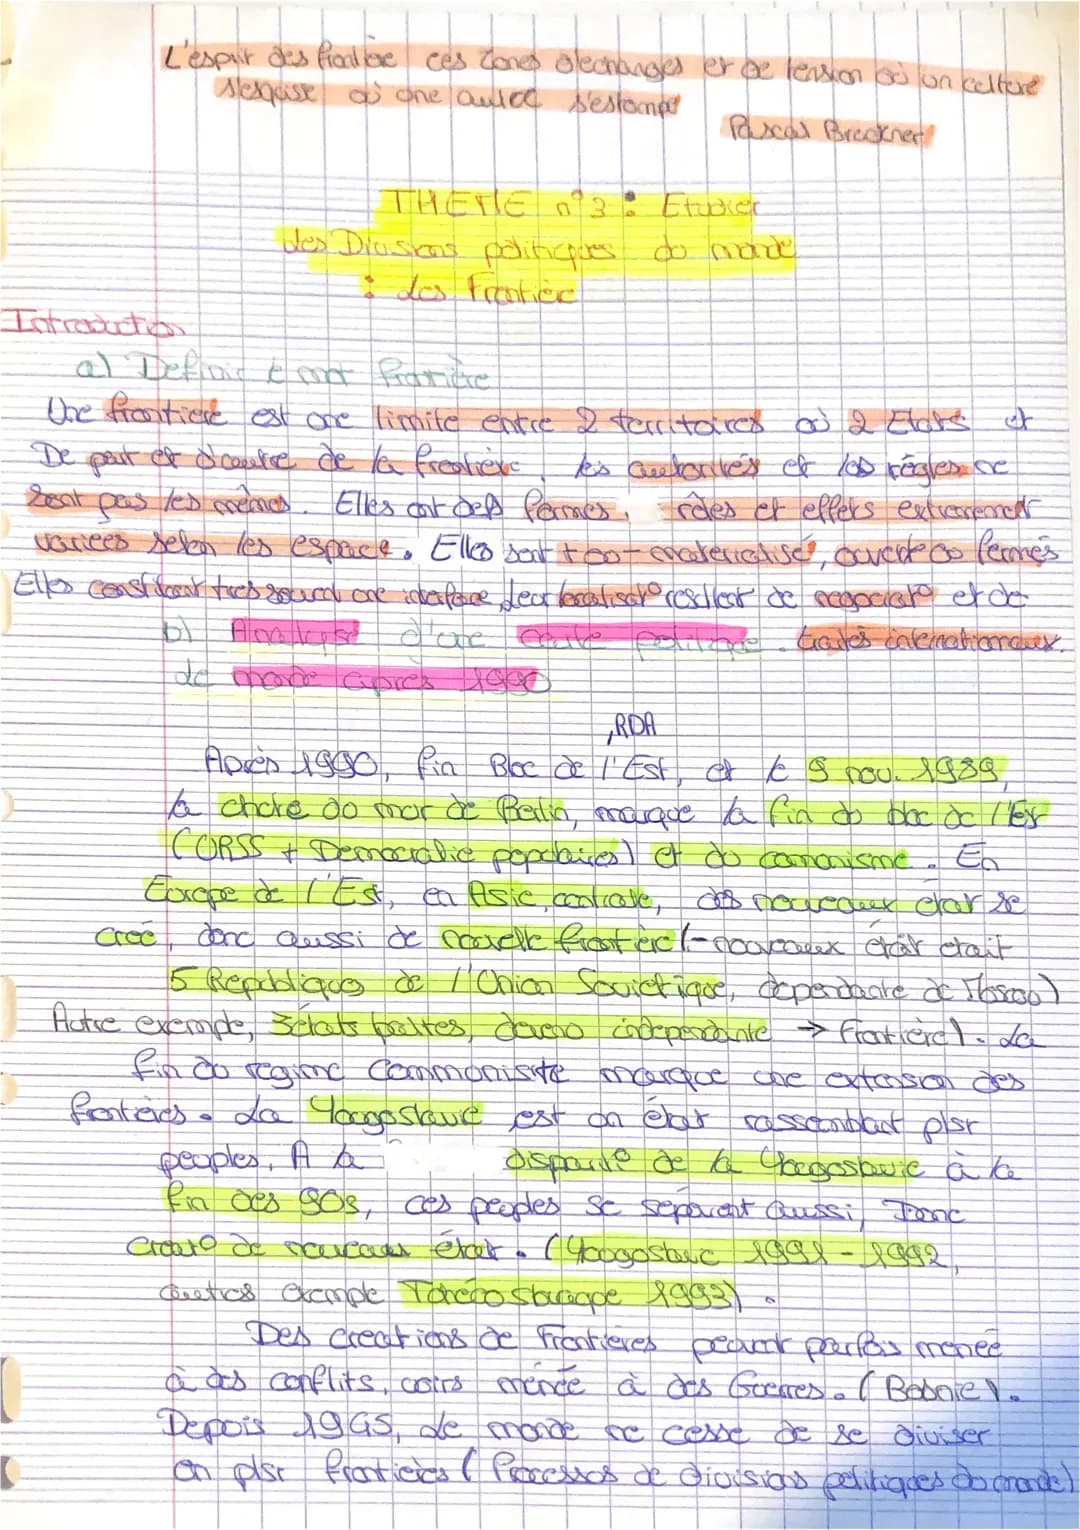 L'espair des frontière ces zones d'echanges et de tension où un culture
s'esquise où une autre s'estompe
Pascal Breckner
THEME n°3 : Etudier
des Divisions politiques du monde
: des Frontière
Introduction
a) Definir le mot frontière
Une frontière est une limite entre 2 territoires où 2 Etats et
De part et d'autre de la frontière, les autorités et les règles ne
sont pas les mêmes. Elles ont des formes, rôles et effets extremement
variées selon les espace. Elles sont tout materialisé, ouverte ou fermés
Elles constituent tres souvent une interface, leur localisat° resulter de negociat° et de
traités internationaux.
b) Analyse d'une carte politique
de monde après 1990
, RDA
Après 1990, fin Bloc de l'Est, et le 9 nov. 1989,
la chute du mur de Berlin, marque la fin du bloc de l'Est
(URSS + Democratie populaires) et du communisme. En
Europe de l'Est, en Asie centrale, des nouveaux état se
créé, donc aussi de nouvelle frontière (-nouveaux état etait
5 Republiques de l'Union Sovietique, dependante de Moscou)
Autre exemple, 3 états baltes, devenu independante → Frontière). La
fin du regime Communiste marque une extension des
frontières. La Yougoslavie est un état rassemblant plsr
peuples. A la disparite de la Yougoslavie à la
fin des 90s, ces peuples se separent aussi, Donc
Creat° de nouveaux état. (Yougoslavie 1991 - 1992,
autres exemple Tchecoslovaque 1993).
Des creations de Frontières peuvent parfois menée
à des conflits, voirs menée à des Guerres. (Bosnie).
Depuis 1945, le monde ne cesse de se diviser
en plsr frontières (Processus de divisions politiques du monde)